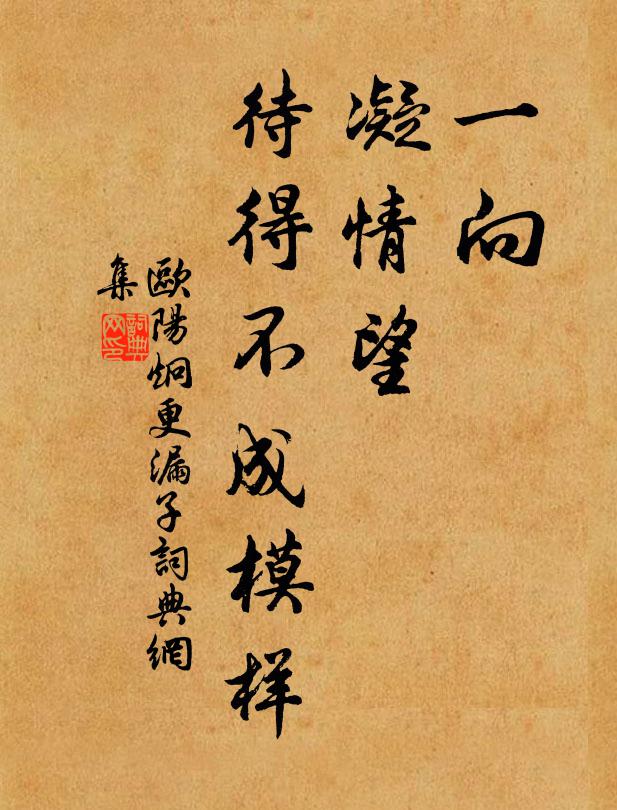 一向
凝情望
待得不成模样
歐陽炯更漏子詞典網
集
詞典
网印